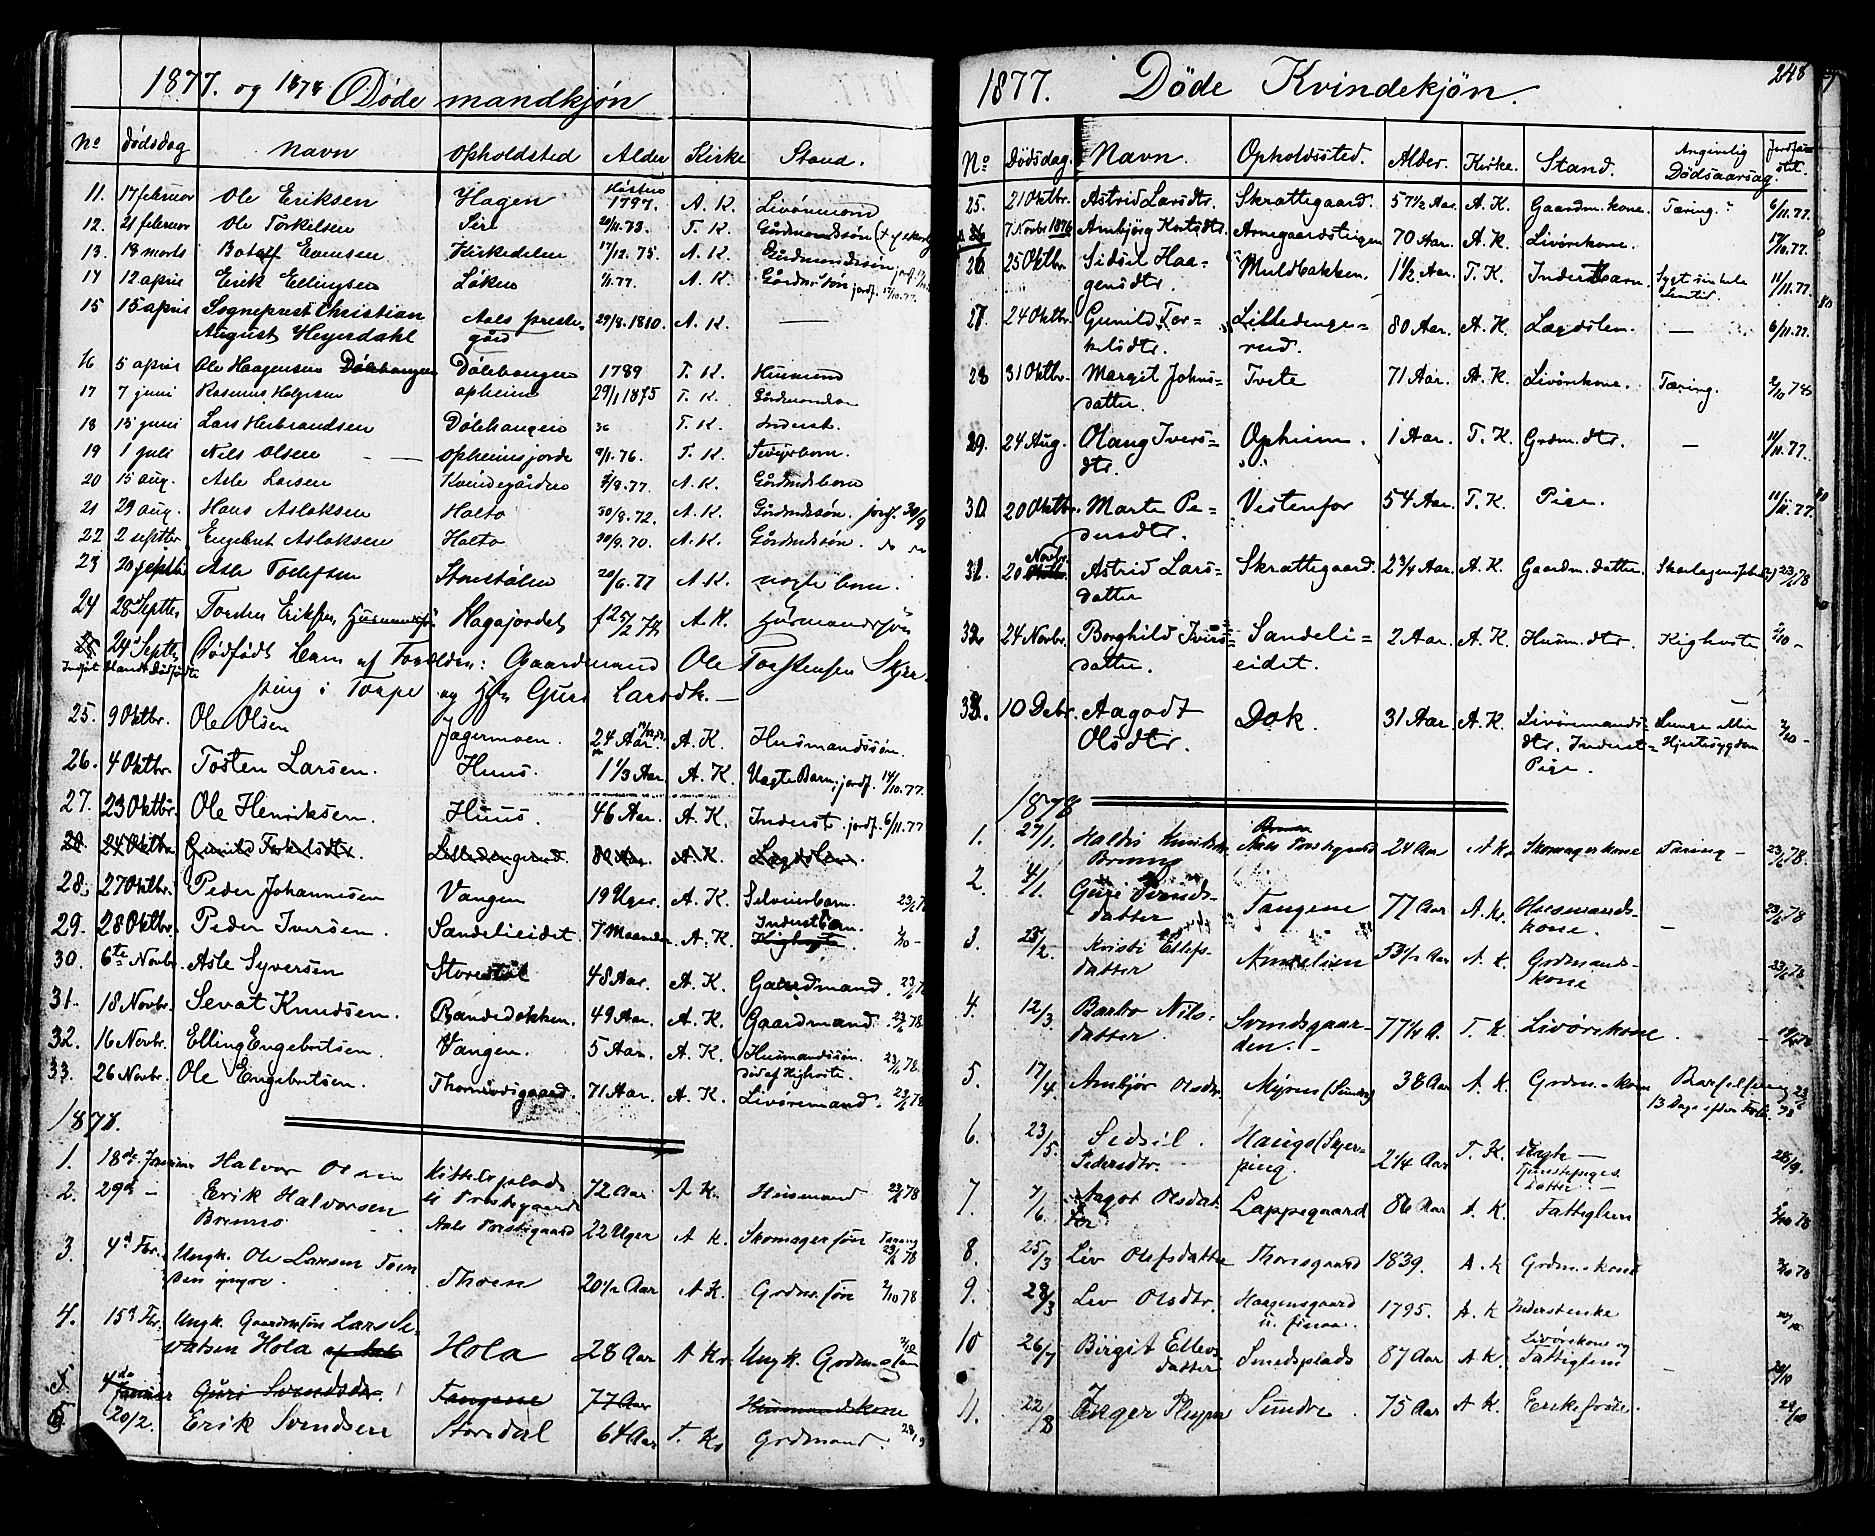 1877. og 1878 Døde mandkjøn
No Dødsdag Navn Opholdsted Alder Kirke Stand.
11. 17 februar Ole Eriksen Hagen Høsten 1797. A. K. Livøremand
12. 21 februar Ole Torkelsen Sire 20/11.73. T. K. Gårdmandssøn
13. 18 marts Botolf Evensen Kirkedelen 17/12.75. A. K. Gårdmandssøn
14 12 april Erik Ellingsen Løken 1/1.77. A. K. Gårdm.søn jordf. 17/10.77.
15 15 april Sogneprest Christian
August Heyerdahl Aals preste-
gård 29/8.1810. A. K. —
16 5 april Ole Haagensen Dølehaugen Dølehaugen 1789 T. K. Husmand
17 7 juni Rasmus Helgesen opheim 29/1 1875 T. K. Gårdmandssøn
18 15 juni Lars Herbrandsen Dølehaugen 36 T. K. Inderst.
19 1 juli Nils Olsen — opheimsjorde 9/1.76. T. K. barn.
20 15 aug. Asle Larsen Kvindegården 3/8.77. A. K. Gårdmdsbarn
21 29 aug. Hans Aslaksen Holto 30/8.72. A. K. Gårdmdssøn. jordf. 30/9
22 2 septbr Engebret Aslaksen Holto 20/9.70. A. K. Gårdmdssøn. do do
23 20 septbr Asle Tollefsen Storestølen 20/6.77 A. K. uægte barn.
24 28 Septbr Torsten Eriksen, Husmandssøn Hagajordet f 25/2 74 A. K. Husmandssøn
25 24de Septbr Dødfødt Barn af Forældr: Gaardmand Ole Torstensen Skjer-
Indført blandt dødfødte
ping i Torpe og Hst. Guri Larsdtr. —
25. 9 Oktbr. Ole Olsen Jægermoen. 24 Aar. A. K. Husmandssøn.
26. 4 Oktbr. Tosten Larsen. Huus. 1 1/3 Aar. A. K. Uægte Barn, jordf. 14/10.77.
27. 23 Oktbr. Ole Henriksen. Huus. 46 Aar. A. K. Inderst. jordf. 6/11.77
28. 24 Oktbr. Gunild Torkelsdtr. Lilledengerud. 80 Aar. A. K. Lægdslem.
28. 27 Oktbr. Peder Johannesen Vangen 19 Uger. A. K. Selveierbarn. 23/6 78
29. 28 Oktbr. Peder Iversen. Sandelieidet. 7 Maaneder A. K. Inderstbarn. Kighoste. 2/10 -
30. 6te Novbr. Asle Syversen Storestøl 48 Aar. A. K. Gaardmand. 23/6 78
31. 18 Novbr. Sevat Knudsen. Brandedokken. 49 Aar. A. K. Gaardmand. 23/6 78
32. 16 Novbr. Elling Engebritsen. Vangen. 5 Aar. A. K. Husmandssøn. 23/6 78
død af Kighoste.
33. 26 Novbr. Ole Engebritsen. Thormodsgaard. 71 Aar. A. K. Livøremand. 23/6 78
1878.
1. 18de Januar Halvor Olsen Kittelsplads
u/ Prestegaard 72 Aar A K. Husmand 23/6 78
2. 29de - Erik Halvorsen
Bruuso Aals Prestegaard 22 Uger A K. Skomagersøn Tæring 23/6 78
3 4de Fbr. Ungk. Ole Larsen Toen
den yngre. Thoen 20 1/2 Aar A K. Grdm.søn 2/10 78
4. 15de Fbr. Ungk. Gaardmssøn Lars Se-
vatsen Hola Hola 28 Aar A K. Ungk. Grdmssøn 2/10
5. 4de Januar Guri Svendsdr. Tangene 77 Aar Husmandskone
5 20/2. Erik Svendsen Storedal 64 Aar T. K. Grdmand. 28/9
1877. Døde Kvindekjøn. 248
No. Dødsdag. Navn. Opholdssted. Alder. Kirke. Stand. Angivelig Dødsaarsag Jordfæstet.
25. 21 Oktbr. Astrid Larsdtr. Skrattegaard. 57 1/2 Aar. A. K. Gaardm. kone. Tæring. 6/11.77.
26 7 Novbr 1876 Ambjørg Knutsdtr. Arnegaardseigen 70 Aar. A. K. Livørekone. 17/10.77.
26. 25 Oktbr. Sidsel Haa-
gensdtr. Muldbakken. 1 1/2 Aar. T. K. Inderstbarn. Sygt sin hele Levetid. 11/11.77.
27. 24 Oktbr. Gunild Tor-
kelsdtr. Lilledenge-
rud. 80 Aar. A. K. Lægdslem. — 6/11.77.
28 31 Oktbr. Margit Johns-
datter. Tvete 71 Aar. A. K. Livørekone. Tæring. 2/10 78
29. 24 Aug. Olaug Ivers-
dtr. Opheim. 1 Aar. T. K. Grdm. dtr. — 11/11.77.
30. 20 Oktbr. Marte Pe-
dersdtr. Vestenfor 54 Aar. T. K. Pige. 11/11.77.
31. 20 Novbr. Astrid Lars-
datter Skrattegaard. 2 3/4 Aar. A. K. Gaardm. datter. Skarlagensfeber 23/6 78
32. 24 Novbr. Borghild Ivers-
datter. Sandeli-
eidet. 2 Aar. A. K. Husm. dtr. Kighoste 2/10 -
33. 10 Debr. Aagodt
Olsdtr. Dok. 31 Aar. A. K. Livøremands-
dtr. Inderst-
Pige. Lunge eller
Hjertesygdom 2/10 -
1878
1. 27/1. Haldis Knudsdtr.
Bruuso Aals Prestegaard 24 Aar A K. Skomagerkone Tæring - 23/6 78.
2. 4/1. Guri Svends-
datter Tangene 77 Aar A. K. Husmands-
kone. — 23/6 78
3. 25/2. Kristi Ellefs-
datter 53 1/2 Aar A. K. Grdmands-
kone 23/6 78
4. 12/3. Barbo Nils-
datter. Svendsgaar-
den. - 77 1/2 A. T. K. Livørekone.
5. 17/4. Ambjør Olsdtr. Myren (Sundre) 38 Aar A. K. Grdm.-kone Barselfeber
13 Dage efter 23/6 78
6. 23/5. Sidsil.
Pedersdtr. Haugo (Skjer-
ping. 2 1/4 Aar T. K. Uægte —
Tjenestepiges
Datter. 28/9.
7. 7/6. Aagot Olsdat-
ter Lappegaard 86 Aar A. K. Fattiglem 2/10 78
8. 25/3 Liv Olefsdatter Thorsgaard 1839. A. K Grdm.-kone 2/10 78
9. 28/3 Liv Olsdtr. Haagensgaard 1795. A. K Inderstenke
10 26/7 Birgit Ellevs
datter Smedsplads 87 Aar A K. Livørekone og
Fattiglem —
11. 22/8 Inger Sundre 75 Aar A K. Enkefrue.